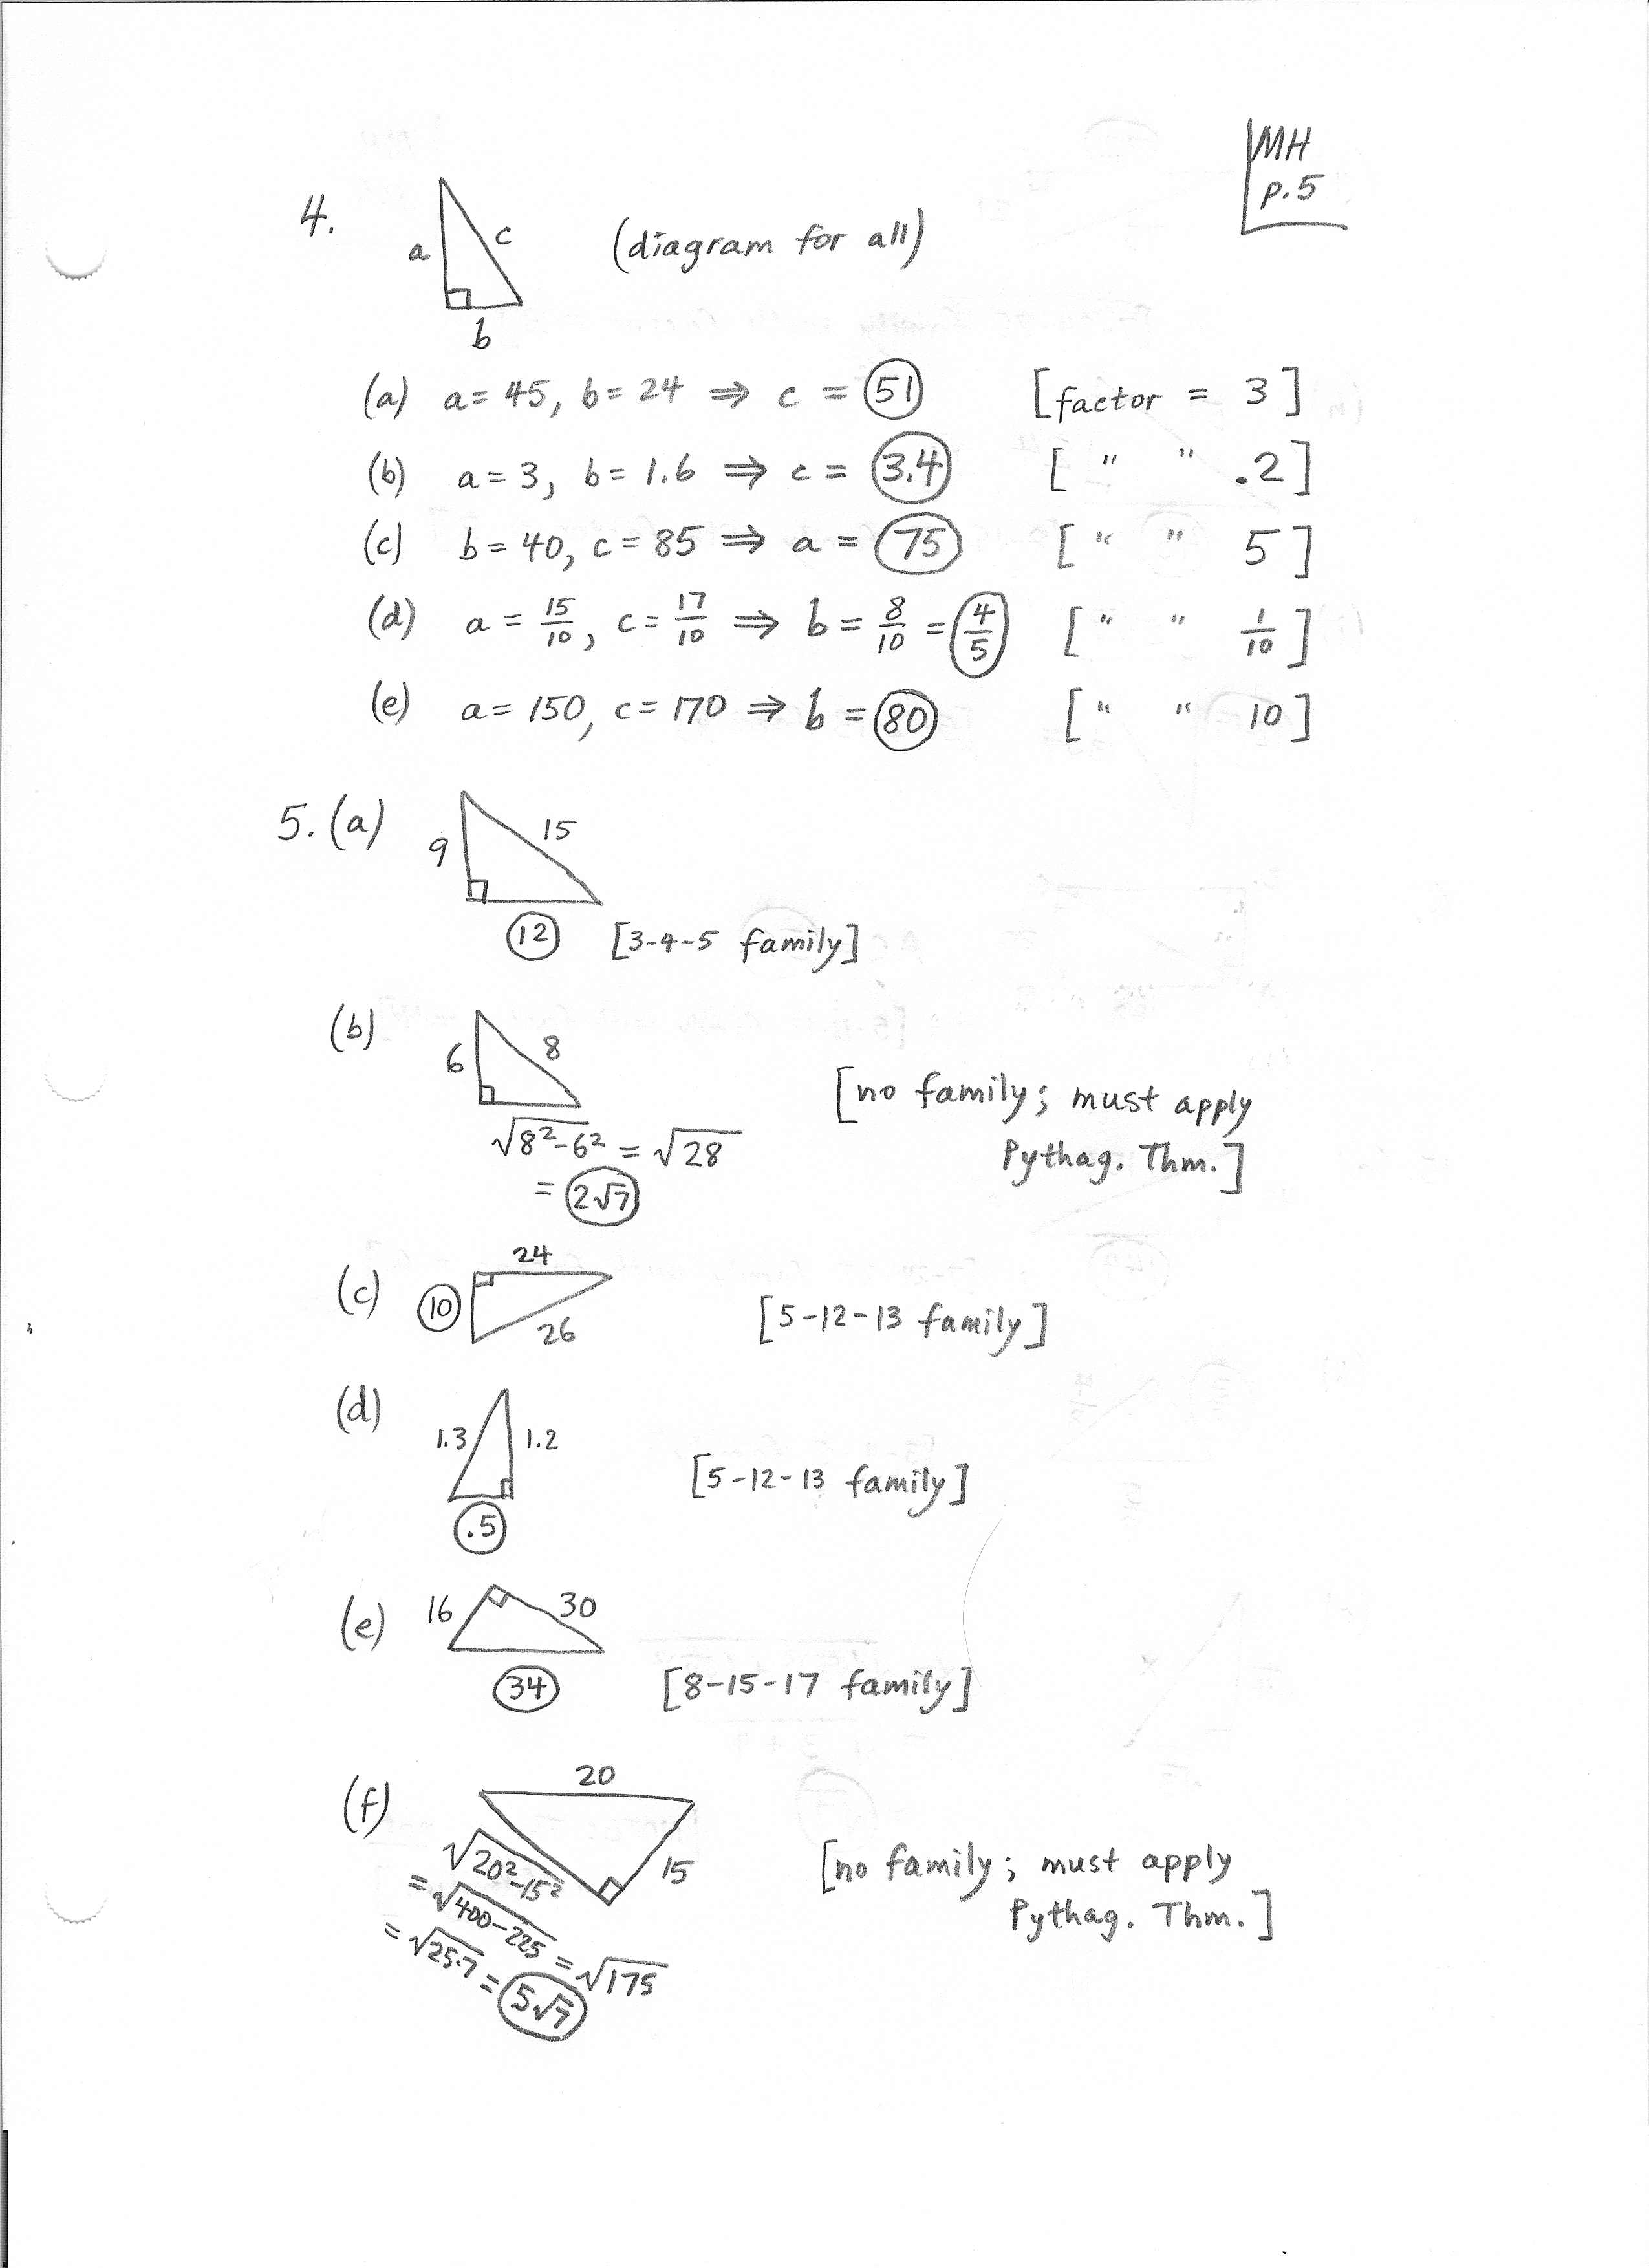 MH
p.5
4.
a
c
(diagram for all)
b
(a) a = 45, b = 24 ⇒ c = 51 [factor = 3]
(b) a = 3, b = 1.6 ⇒ c = 3.4 [ " " .2]
(c) b = 40, c = 85 ⇒ a = 75 [ " " 5]
(d) a = 15/10, c = 17/10 ⇒ b = 8/10 = 4/5 [ " " 1/10]
(e) a = 150, c = 170 ⇒ b = 80 [ " " 10]
5. (a)
9
15
12 [3-4-5 family]
(b)
6
8
√8²-6² = √28
= 2√7
[no family; must apply
Pythag. Thm.]
(c)
24
10
26
[5-12-13 family]
(d)
1.3
1.2
.5
[5-12-13 family]
(e)
16
30
34
[8-15-17 family]
(f)
20
15
√20²-15²
= √400-225 = √175
= √25·7 = 5√7
[no family; must apply
Pythag. Thm.]